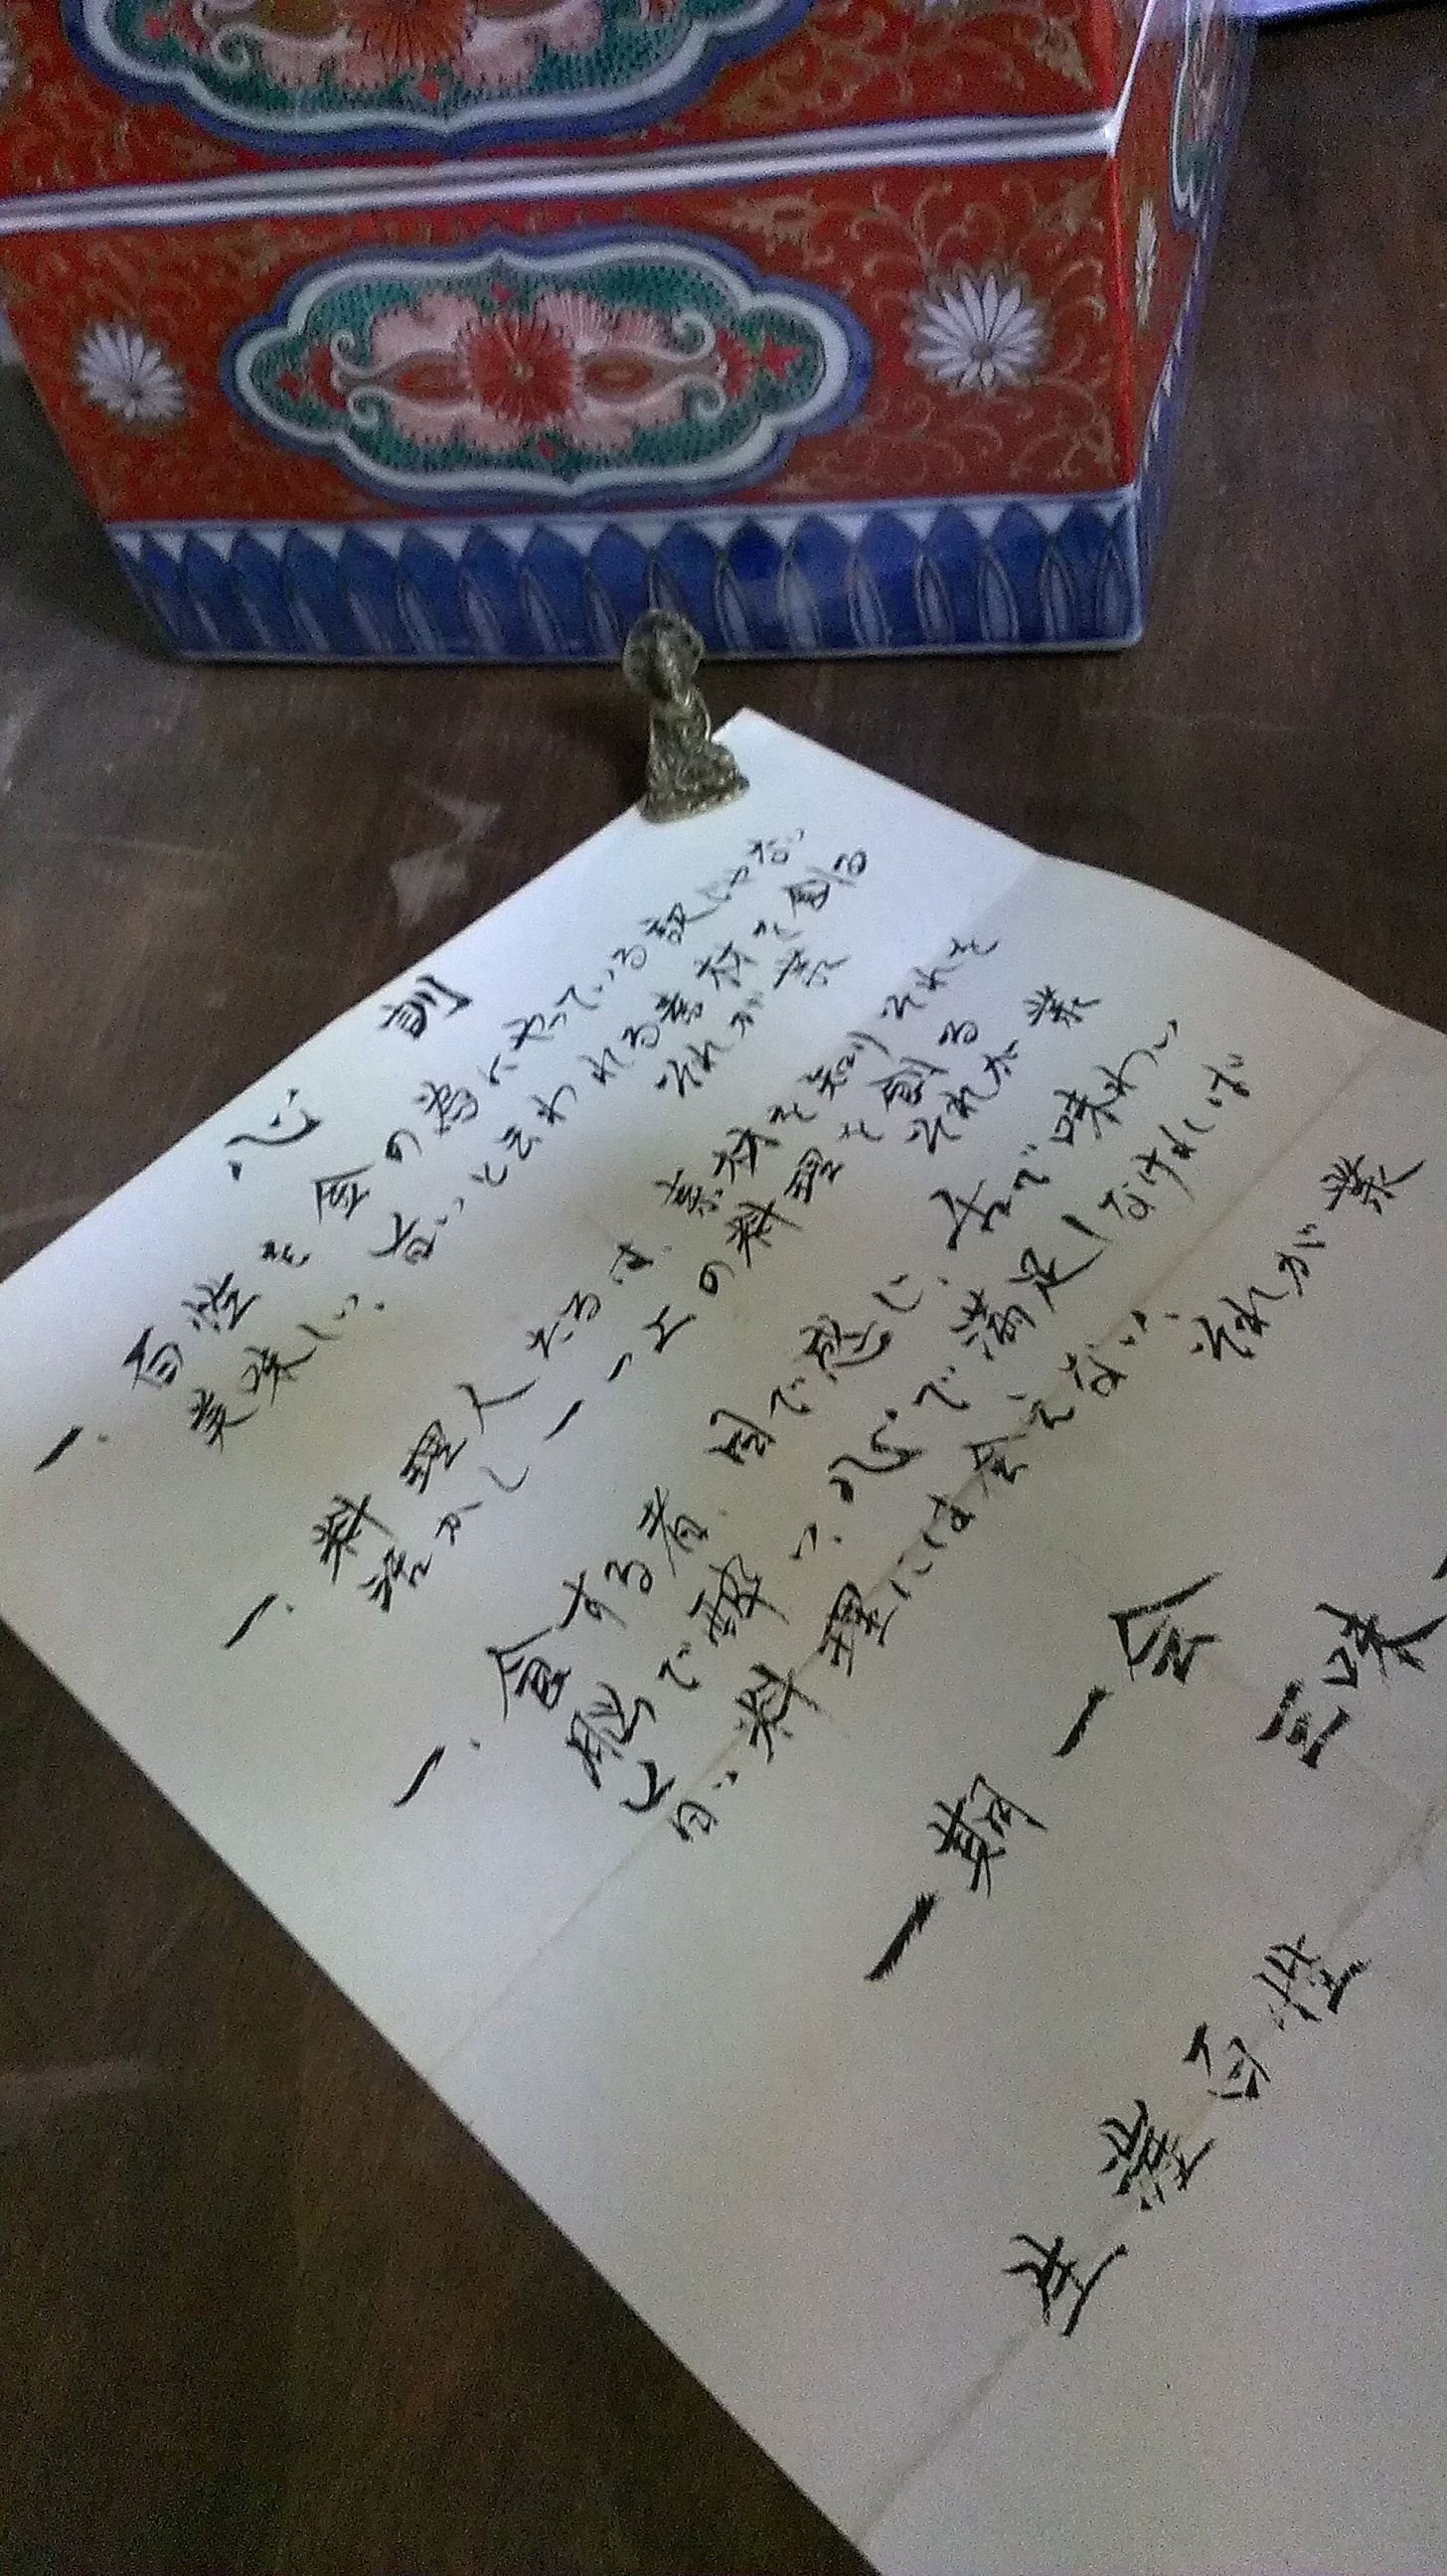 心 訓
一. 百姓を金の為にやっている訳じゃない
美味しい、旨いと云われる素材を創る
それが業
一. 料理人たるは、素材を知りそれを
活かし一、一工の料理を創る
それが業
一. 食する者、目で感じ、舌で味わい
脳で酔い、心で満足しなければ
旨い料理には会えない、それが業
一期一会
三昧
生涯百姓